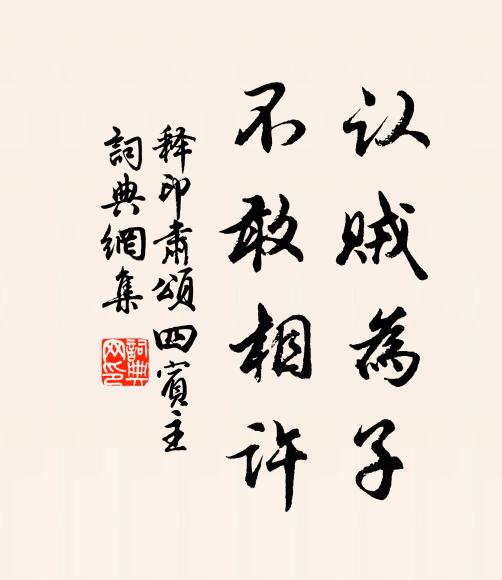 认贼為子
不敢相许
释印肃颂四賓主
詞典網集
詞典
网印